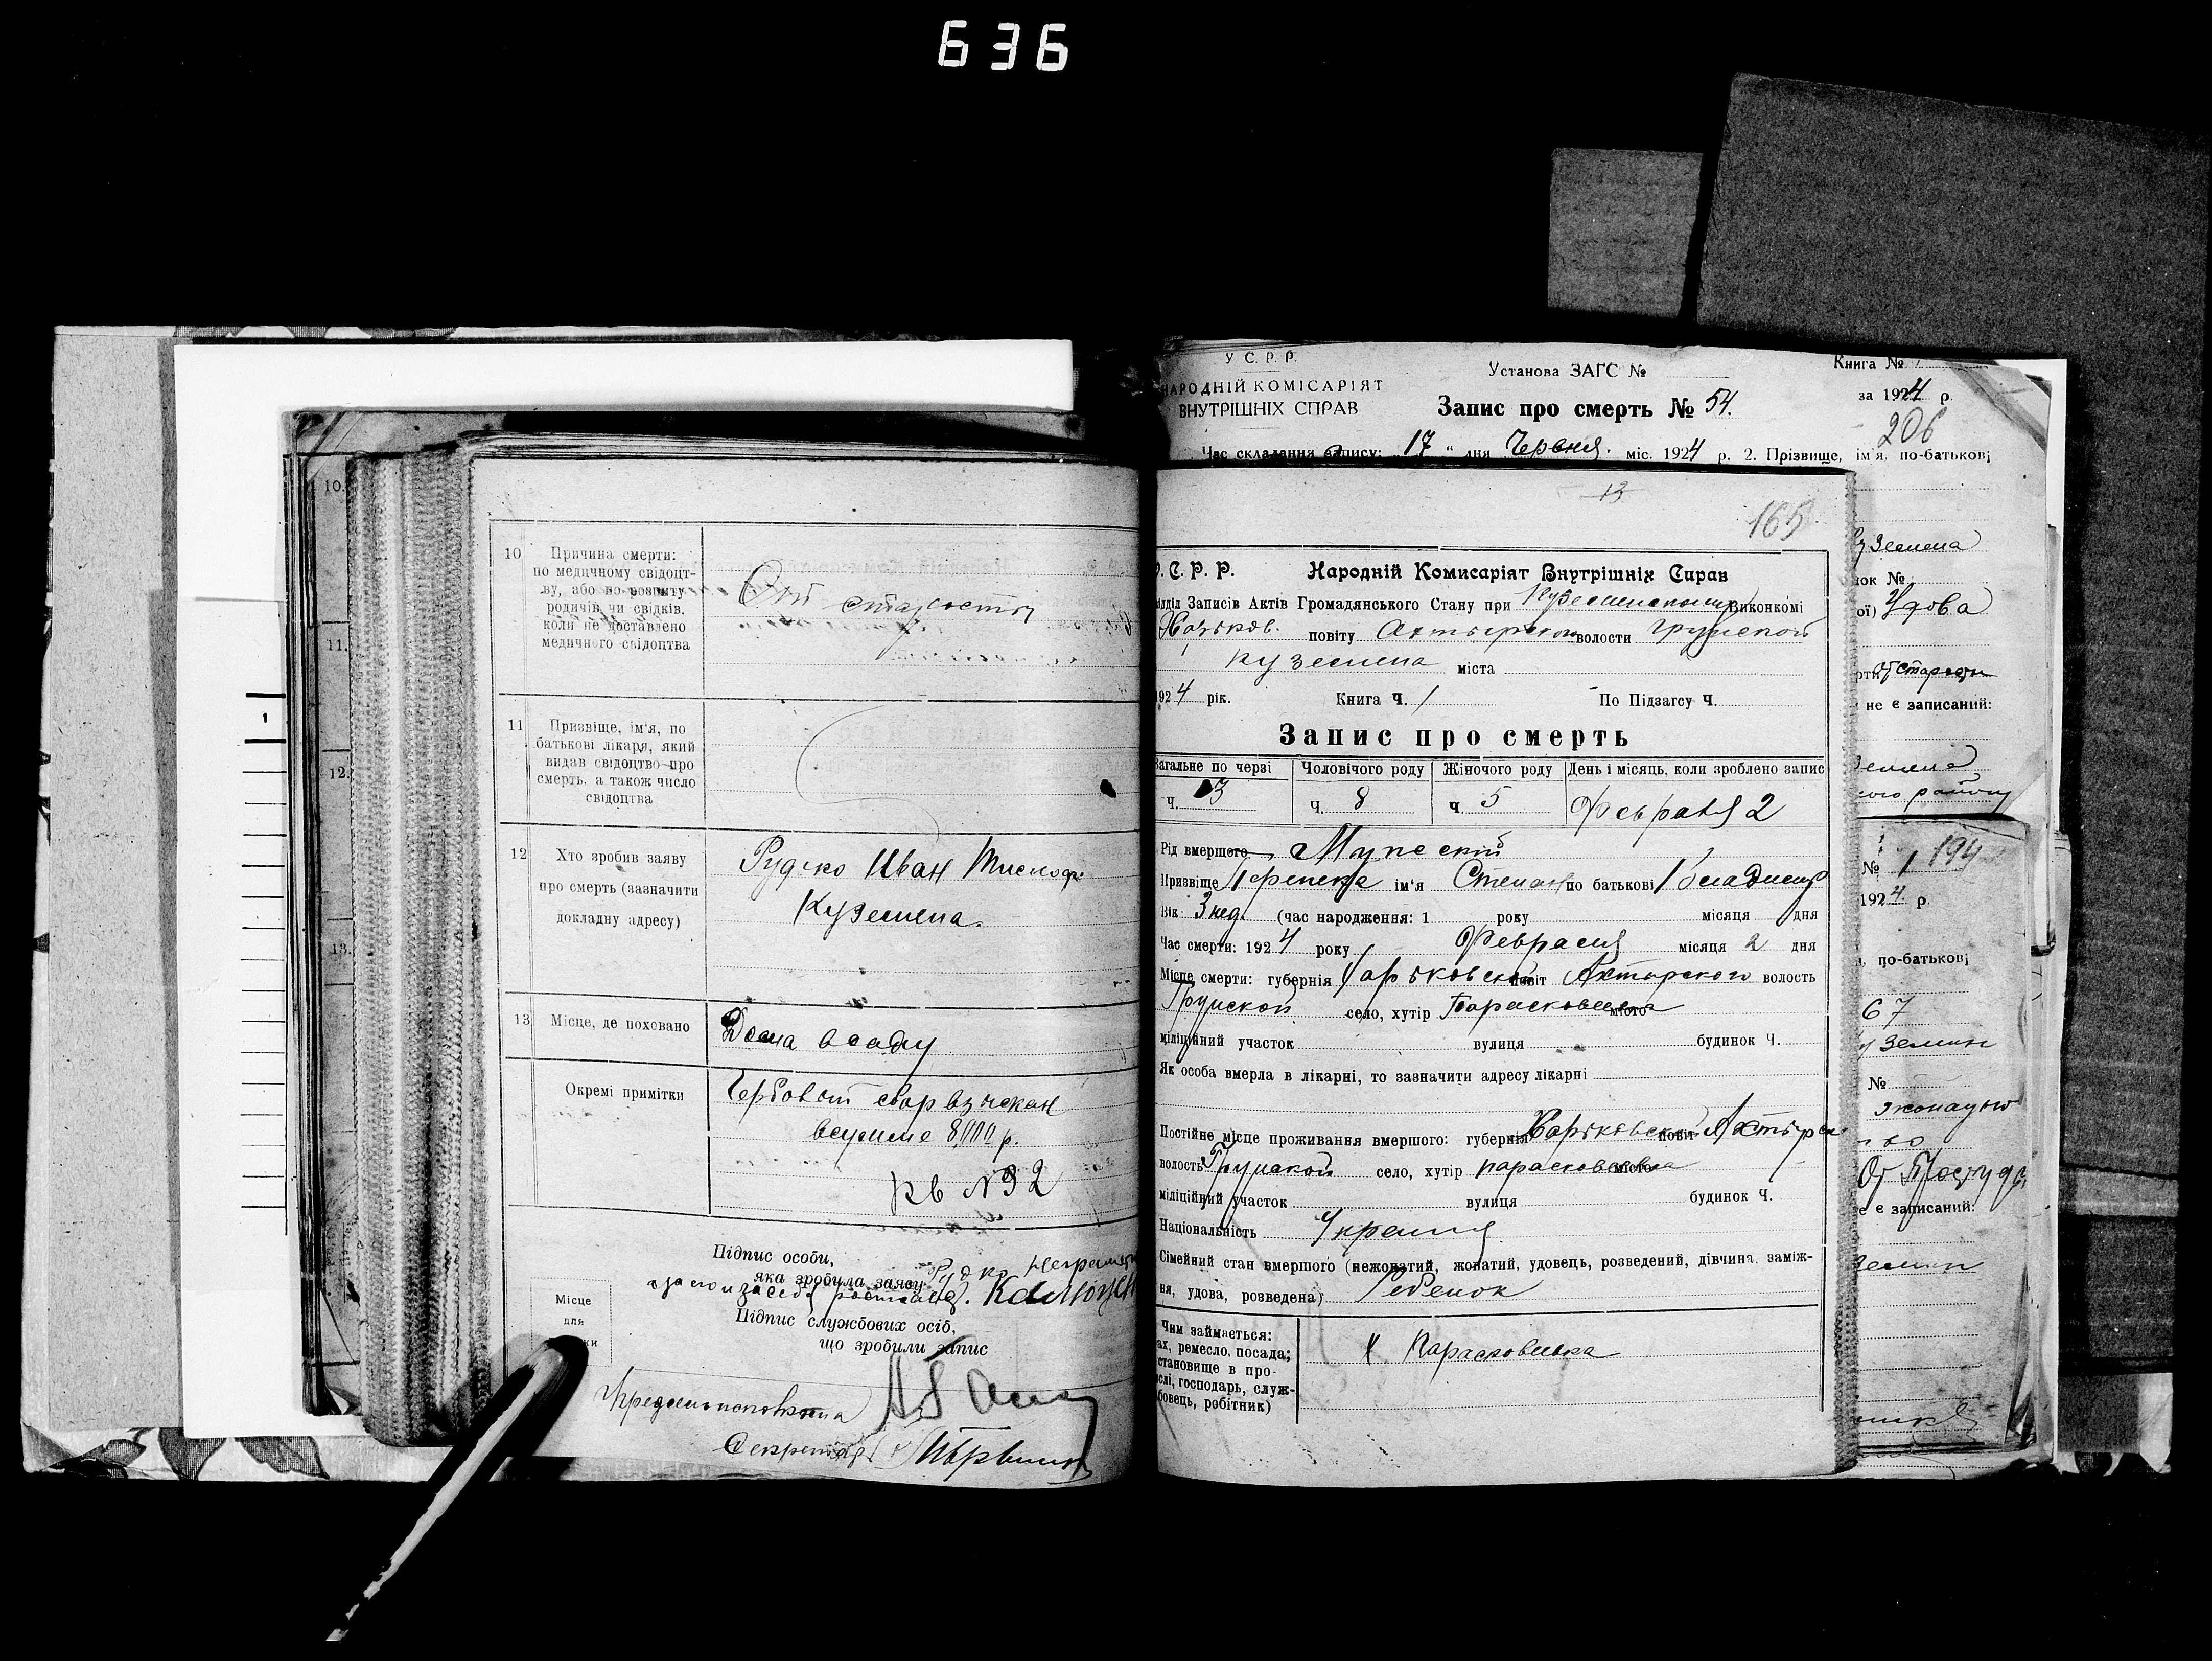 636
10.
11.
12.
13.
10 Причина смерти:
по медичному свідоцт-
ву, або по розпиту
родичів чи свідків,
коли не доставлено
медичного свідоцтва
От старости
11 Призвіще, ім'я, по
батькові лікаря, який
видав свідоцтво про
смерть, а також число
свідоцтва
12 Хто зробив заяву
про смерть (зазначити
докладну адресу)
Рудко Иван
Куземена.
13 Місце, де поховано
Дома в саду
Окремі примітки
Гербовый сбор взыскан
в сумме 8000 р.
кв №32
Підпис особи,
яка зробила заяву
Рудко неграмотн
Місце
для
Підпис службових осіб,
що зробили запис
Секретарь
У С. Р. Р.
НАРОДНІЙ КОМІСАРІЯТ
ВНУТРІШНІХ СПРАВ
Установа ЗАГС №
Запис про смерть № 54.
Книга №
за 1924 р.
206
Час складання запису: 17 " дня Червня. міс. 1924 р. 2. Прізвище, ім'я, по-батькові
13
165
С. Р. Р. Народній Комисаріят Внутрішніх Справ
ідділ Записів Актів Громадянського Стану при Куземенском Виконкомі
Харьков. повіту Ахтырского волости Грунской
Куземена міста
1924 рік. Книга Ч. 1 По Підзагсу Ч.
Запис про смерть
Загальне по черзі Чоловічого роду Жіночого роду День і місяць, коли зроблено запис
ч. 13 ч. 8 ч. 5 Февраля 2
Рід вмершого Мужской
Призвіще Перепека ім'я Степан по батькові Владимир
Вік 3 нед. (час народження: 1 року місяця дня
Час смерти: 1924 року Февраля місяця 2 дня
Місце смерти: губернія Харьковской повіт Ахтырского волость
Грунской село, хутір Парасковеевка місто
міліційний участок вулиця будинок Ч.
Як особа вмерла в лікарні, то зазначити адресу лікарні
Постійне місце проживання вмершого: губернія Харьковской повіт Ахтырск
волость Грунской село, хутір парасковеевка місто
міліційний участок вулиця будинок Ч.
Національність Украинц
Сімейний стан вмершого (нежонатий, жонатий, удовець, розведений, дівчина, заміж-
ня, удова, розведена) Ребенок
Чим займається:
ах, ремесло, посада;
становище в про-
слі, господарь, служ-
бовець, робітник)
х. Парасковеевка
уземена
нок №
ої) Удова
от старости
не є записаний:
земена
ого району
№ 1 194
1924 р.
, по-батькові
67
узeмин
№
От Простуды
е є записаний:
земин